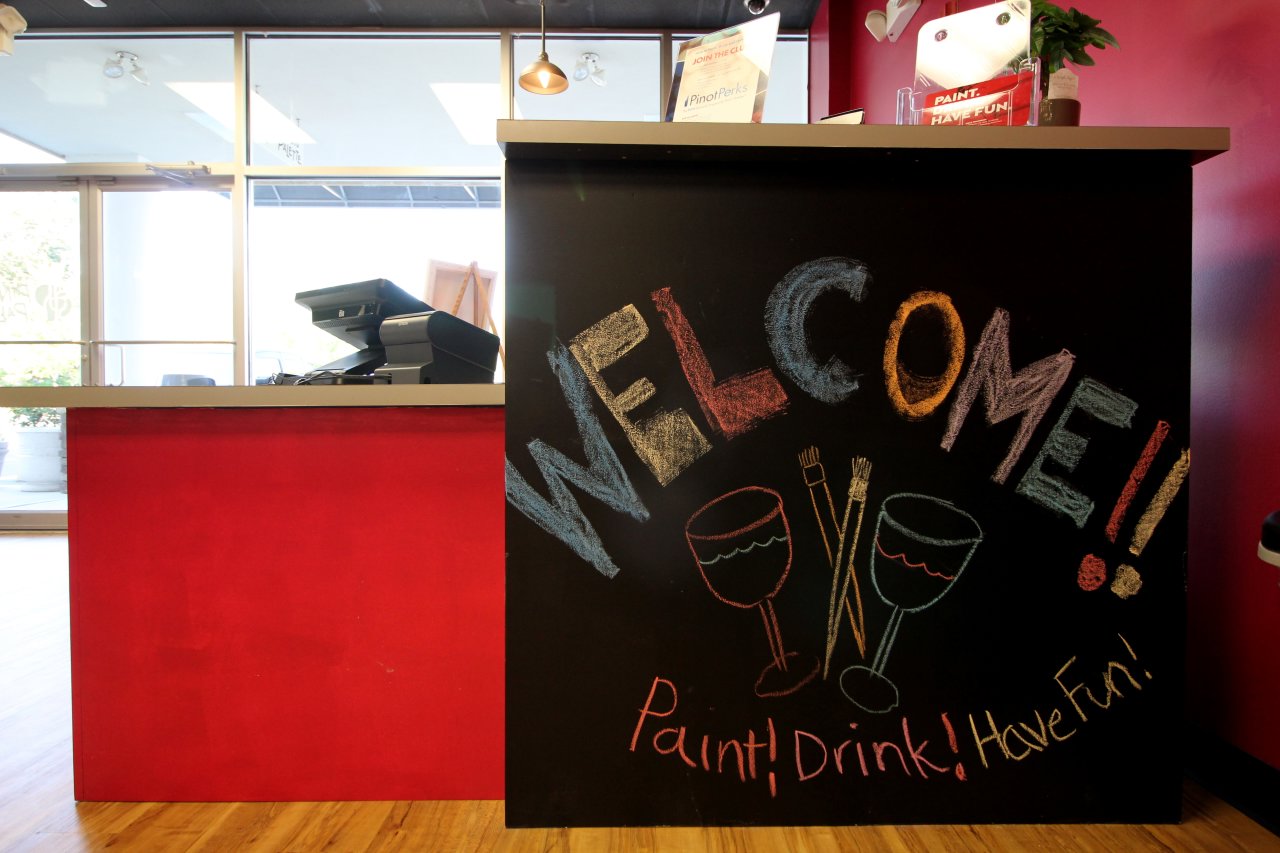 JOIN THE CLU
PinotPerks
PAINT.
HAVE FUN.
PALETTE
WELCOME!!
Paint! Drink! Have Fun!